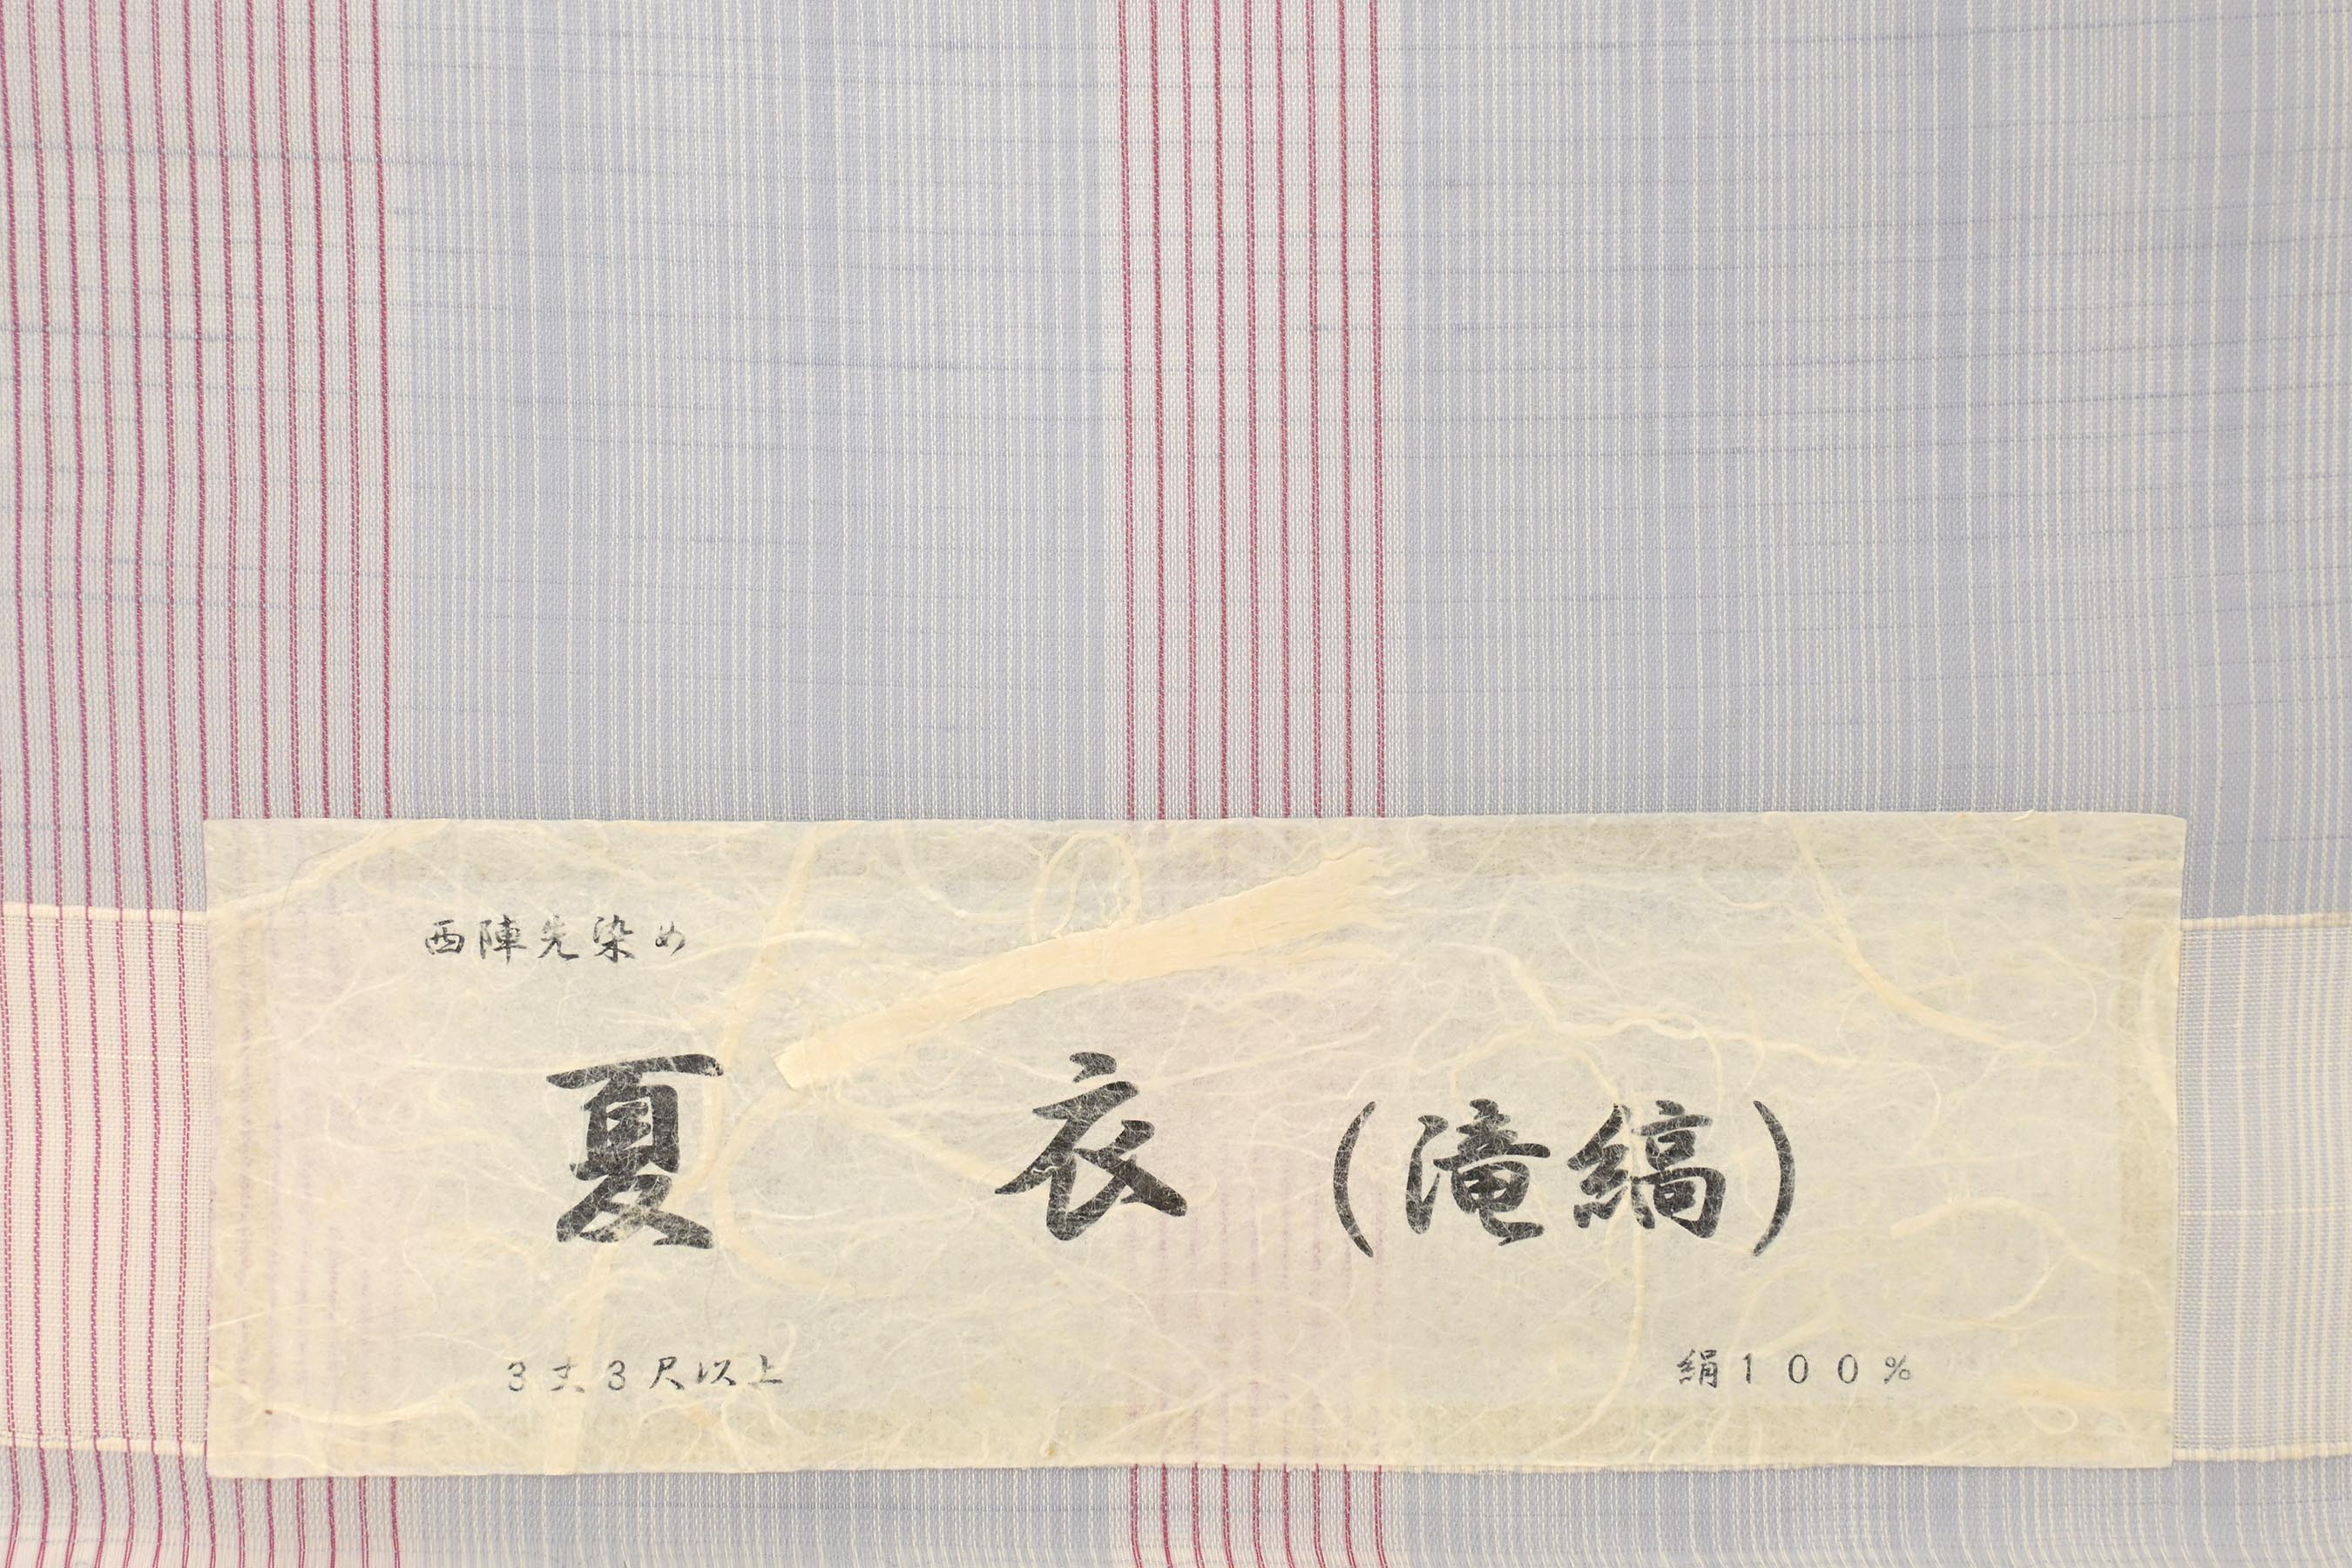 西陣先染め
夏 衣(滝縞)
3丈3尺以上
絹100%